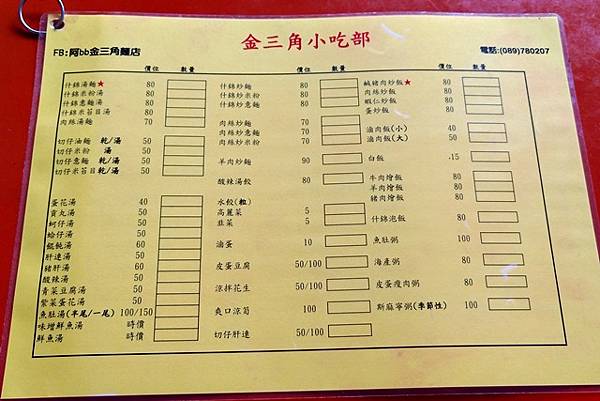 金三角小吃部
FB:阿bb金三角麵店
電話:(089)780207
價位 數量
什錦湯麵★ 80
什錦米粉湯 80
什錦意麵湯 80
什錦米苔目湯 80
肉絲湯麵 70
切仔油麵 乾/湯 50
切仔米粉 湯 50
切仔意麵 乾/湯 50
切仔米苔目乾/湯 50
蛋花湯 40
貢丸湯 50
蚵仔湯 50
蛤仔湯 50
餛飩湯 60
肝連湯 50
豬肝湯 60
酸辣湯 50
青菜豆腐湯 50
紫菜蛋花湯 50
魚肚湯(半尾/一尾) 100/150
味增鮮魚湯 時價
鮮魚湯 時價
價位 數量
什錦炒麵 80
什錦炒米粉 80
什錦炒意麵 80
肉絲炒麵 70
肉絲炒意麵 70
肉絲炒米粉 70
羊肉炒麵 90
酸辣湯餃 80
水餃(粒)
高麗菜 5
韭菜 5
滷蛋 10
皮蛋豆腐 50/100
涼拌花生 50/100
爽口涼筍 100
切仔肝連 50/100
價位 數量
鹹豬肉炒飯★ 80
肉絲炒飯 80
蝦仁炒飯 80
蛋炒飯 80
滷肉飯(小) 40
滷肉飯(大) 50
白飯 15
牛肉燴飯 80
羊肉燴飯 80
豬肉燴飯 80
什錦泡飯 80
魚肚粥 100
海產粥 80
皮蛋瘦肉粥 80
斯麻寧粥(季節性) 100